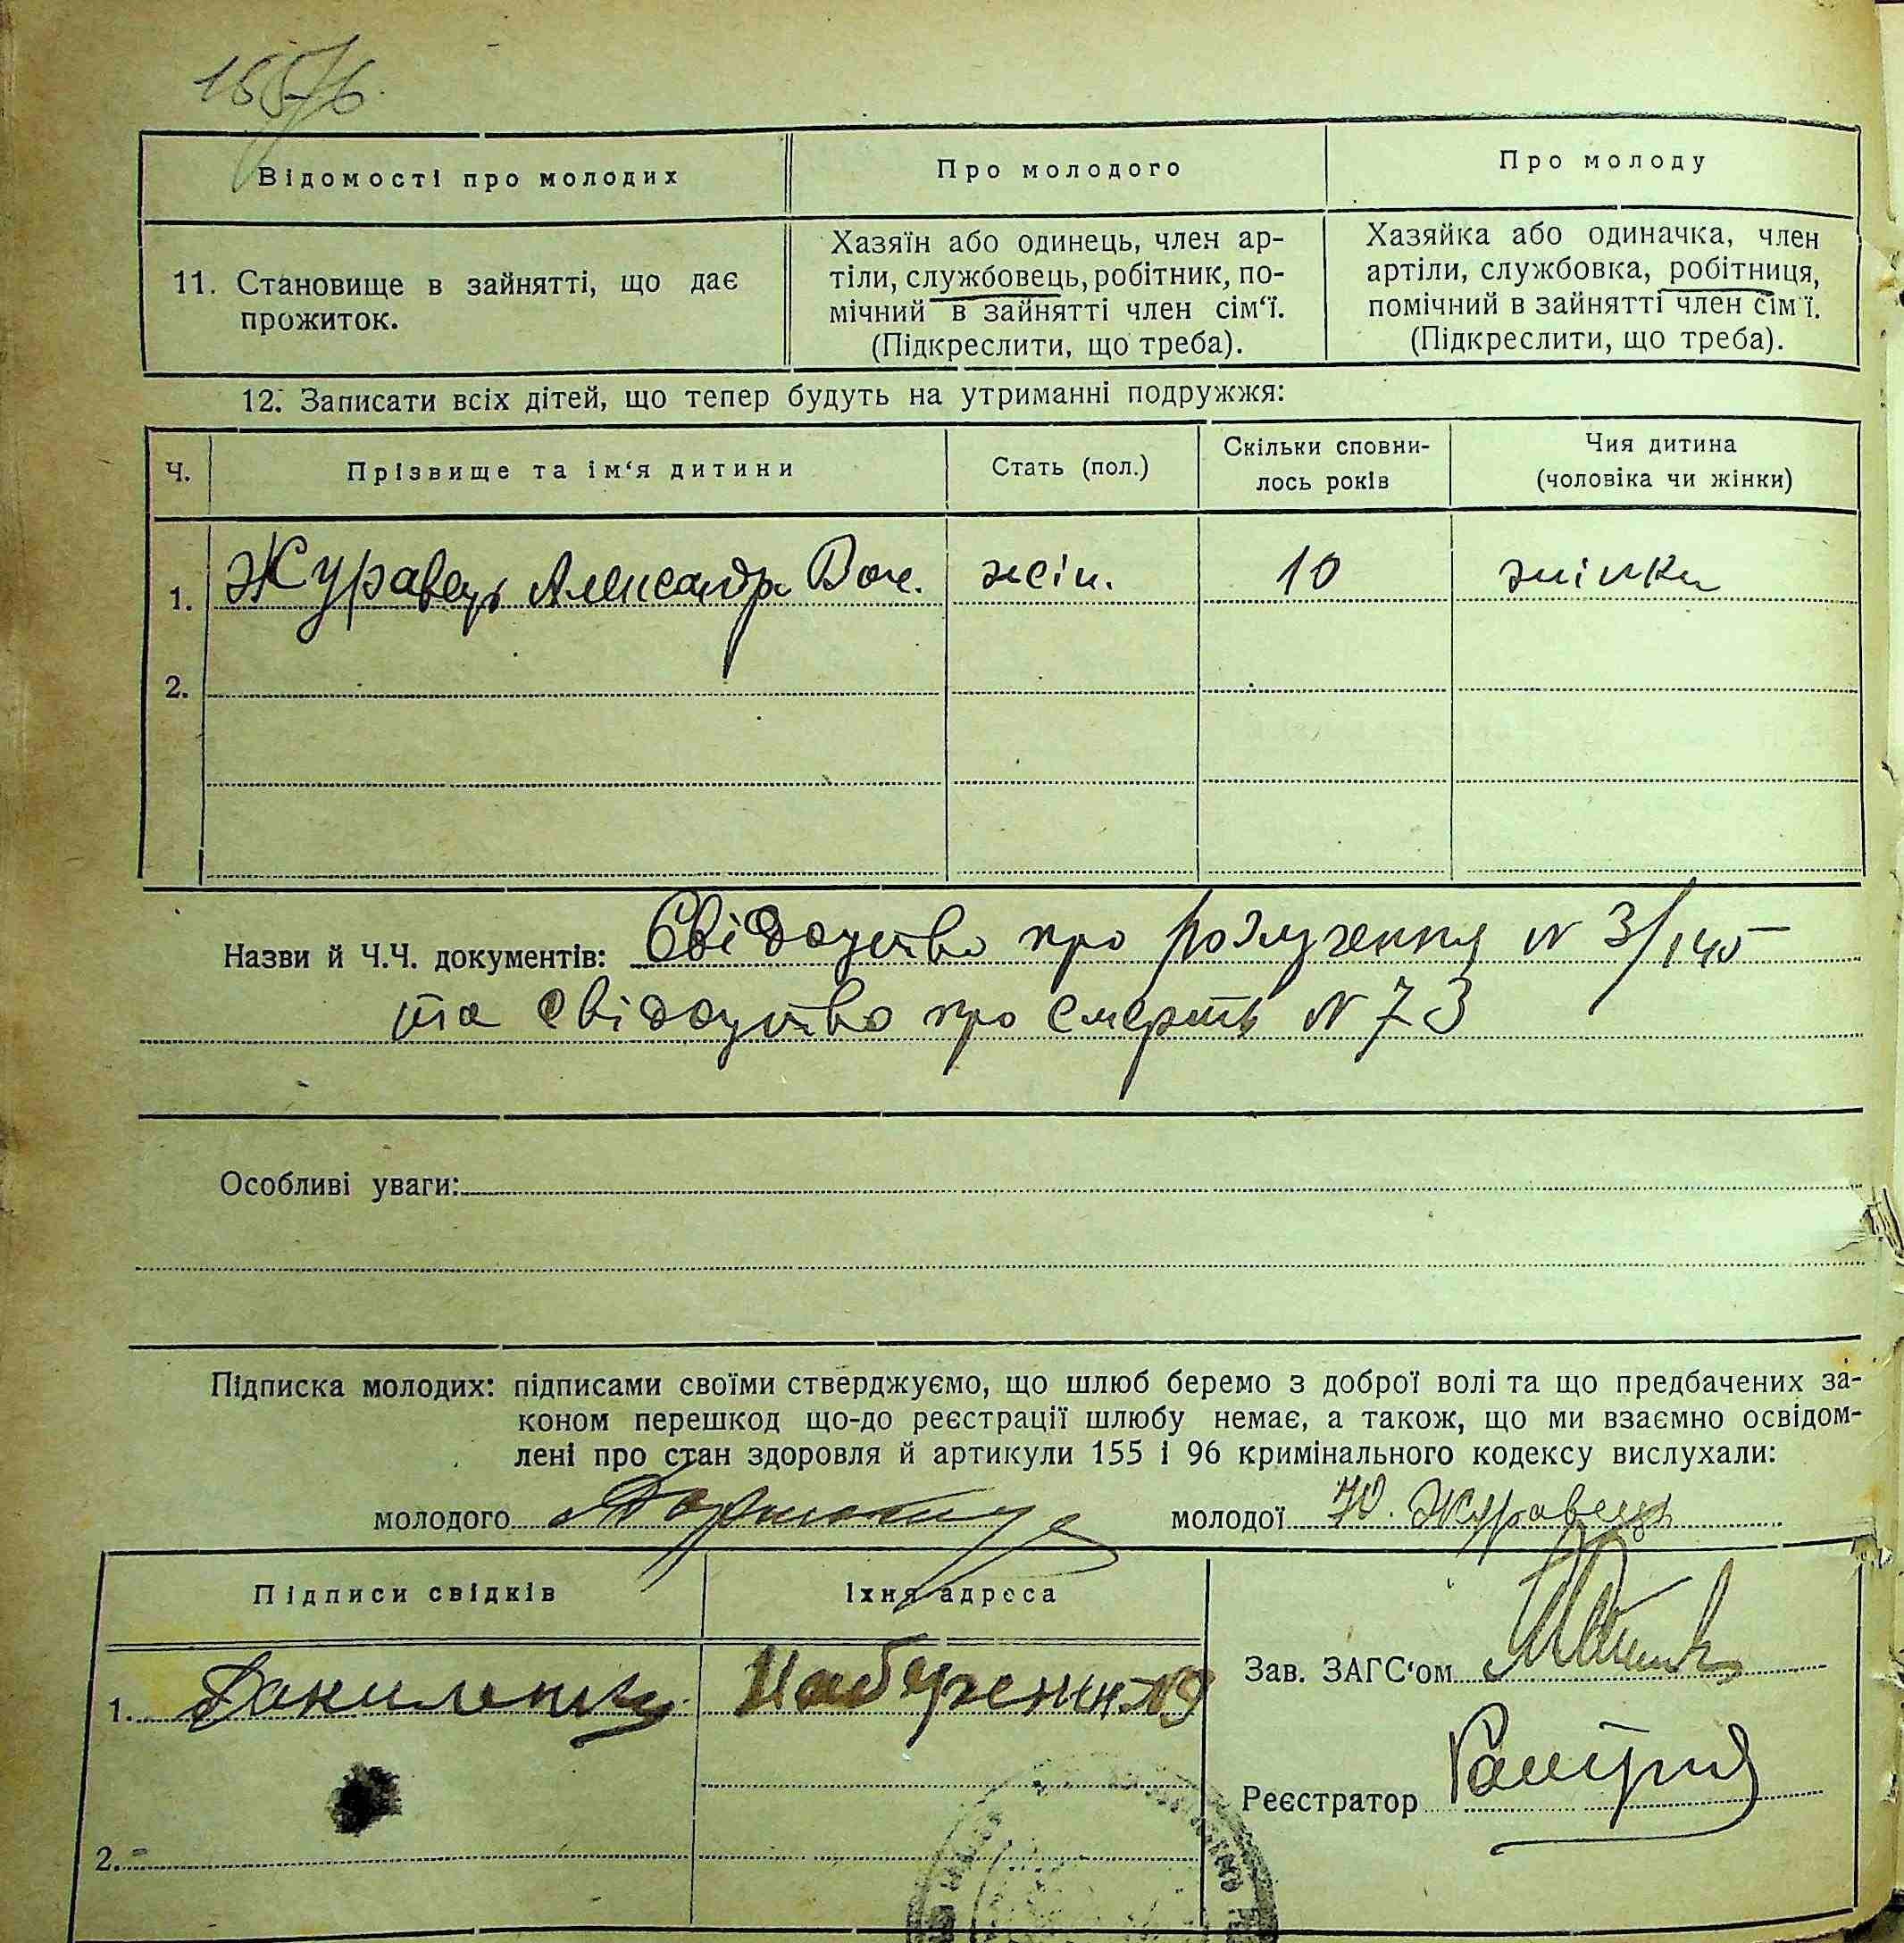 Відомості про молодих
Про молодого
Про молоду
11. Становище в зайнятті, що дає
прожиток.
Хазяїн або одинець, член ар-
тіли, службовець, робітник, по-
мічний в зайнятті член сім'ї.
(Підкреслити, що треба).
Хазяйка або одиначка, член
артіли, службовка, робітниця,
помічний в зайнятті член сім'ї.
(Підкреслити, що треба).
12. Записати всіх дітей, що тепер будуть на утриманні подружжя:
Ч.
Прізвище та ім'я дитини
Стать (пол.)
Скільки сповни-
лось років
Чия дитина
(чоловіка чи жінки)
1. Журавець Александр жін. 10 жінки
2.
Назви й Ч.Ч. документів: Свідоцтво про розлучення N 3/145
та свідоцтво про смерть N 73
Особливі уваги:
Підписка молодих: підписами своїми стверджуємо, що шлюб беремо з доброї волі та що предбачених за-
коном перешкод що-до реєстрації шлюбу немає, а також, що ми взаємно освідом-
лені про стан здоровля й артикули 155 і 96 кримінального кодексу вислухали:
молодого молодої Ю. Журавець
Підписи свідків
Їхня адреса
Зав. ЗАГС'ом
1. Даниленко
Реєстратор
2.